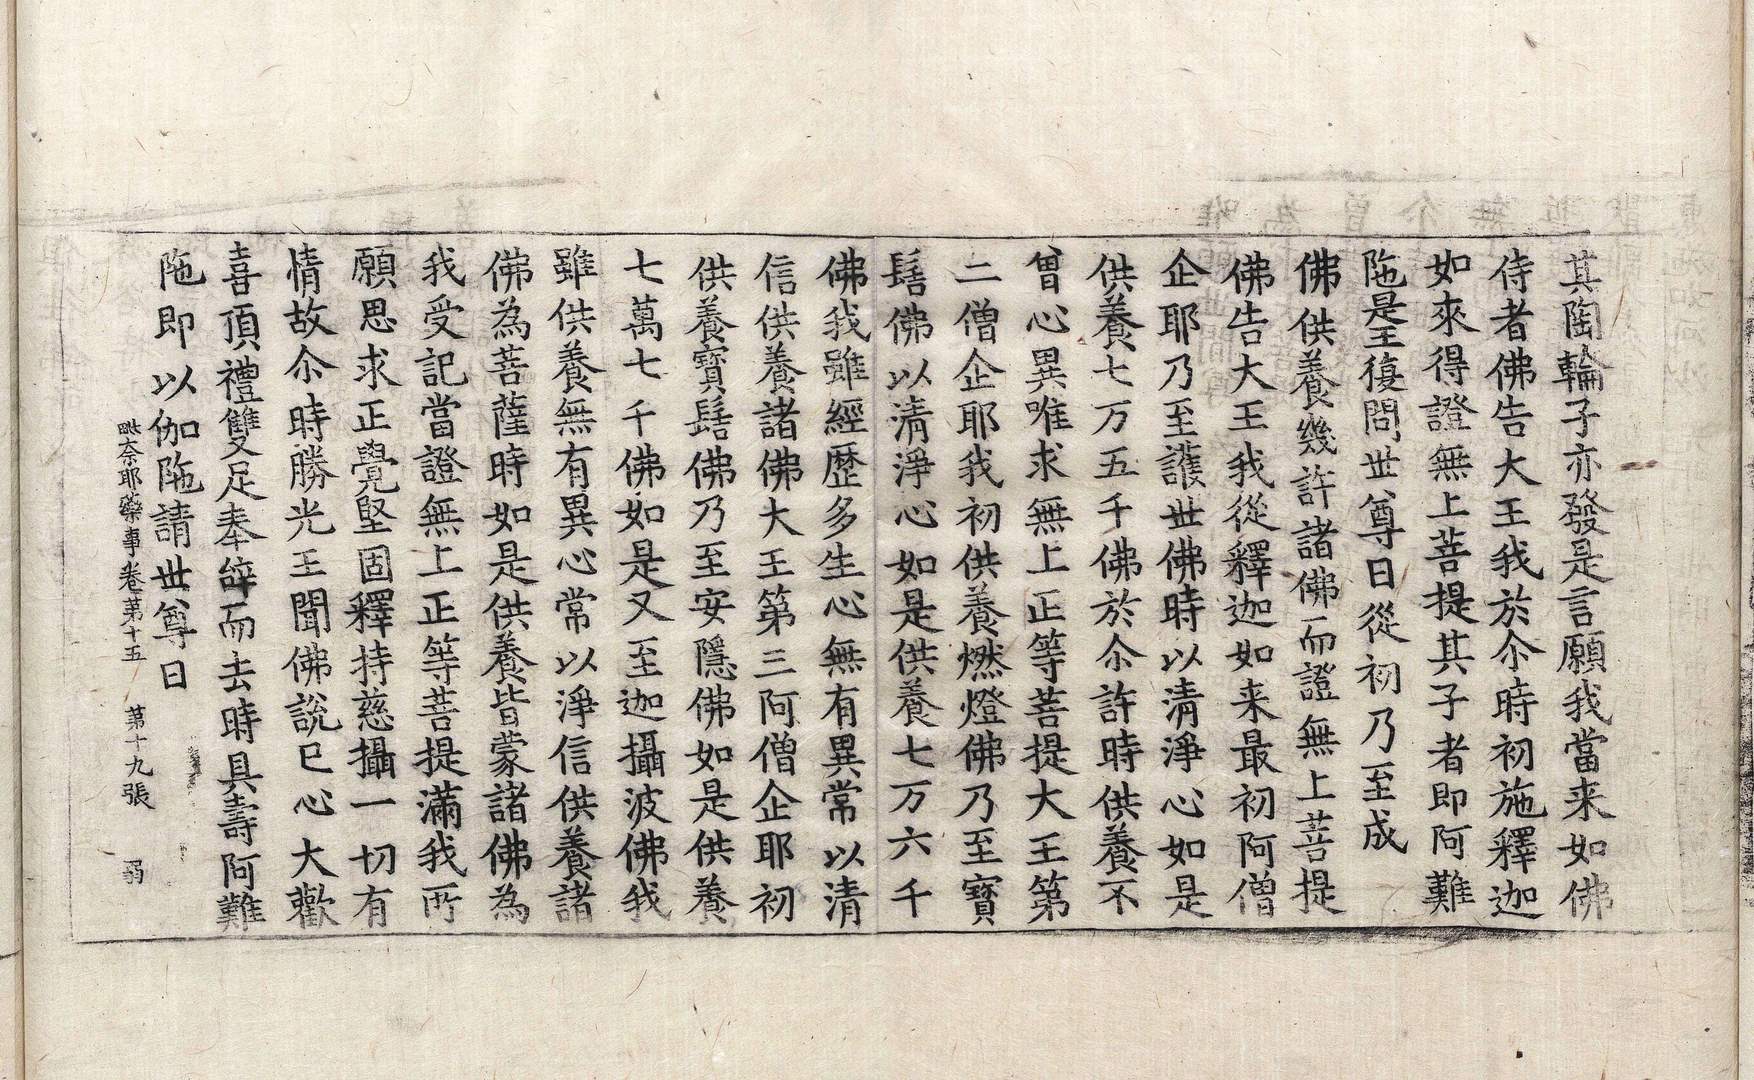 其陶輪子亦發是言願我當来如佛
侍者佛告大王我於尒時初施釋迦
如來得證無上菩提其子者即阿難
陁是王復問世尊曰從初乃至成
佛供養幾許諸佛而證無上菩提
佛告大王我從釋迦如来最初阿僧
企耶乃至護世佛時以清淨心如是
供養七万五千佛於尒許時供養不
曾心異唯求無上正等菩提大王第
二僧企耶我初供養燃燈佛乃至寶
髻佛以清淨心如是供養七万六千
佛我雖經歷多生心無有異常以清
信供養諸佛大王第三阿僧企耶初
供養寶髻佛乃至安隱佛如是供養
七萬七千佛如是又至迦攝波佛我
雖供養無有異心常以淨信供養諸
佛為菩薩時如是供養皆蒙諸佛為
我受記當證無上正等菩提滿我所
願思求正覺堅固釋持慈攝一切有
情故尒時勝光王聞佛說已心大歡
喜頂禮雙足奉辞而去時具壽阿難
陁即以伽陁請世尊曰
毗奈耶藥事卷第十五 第十九張 弱